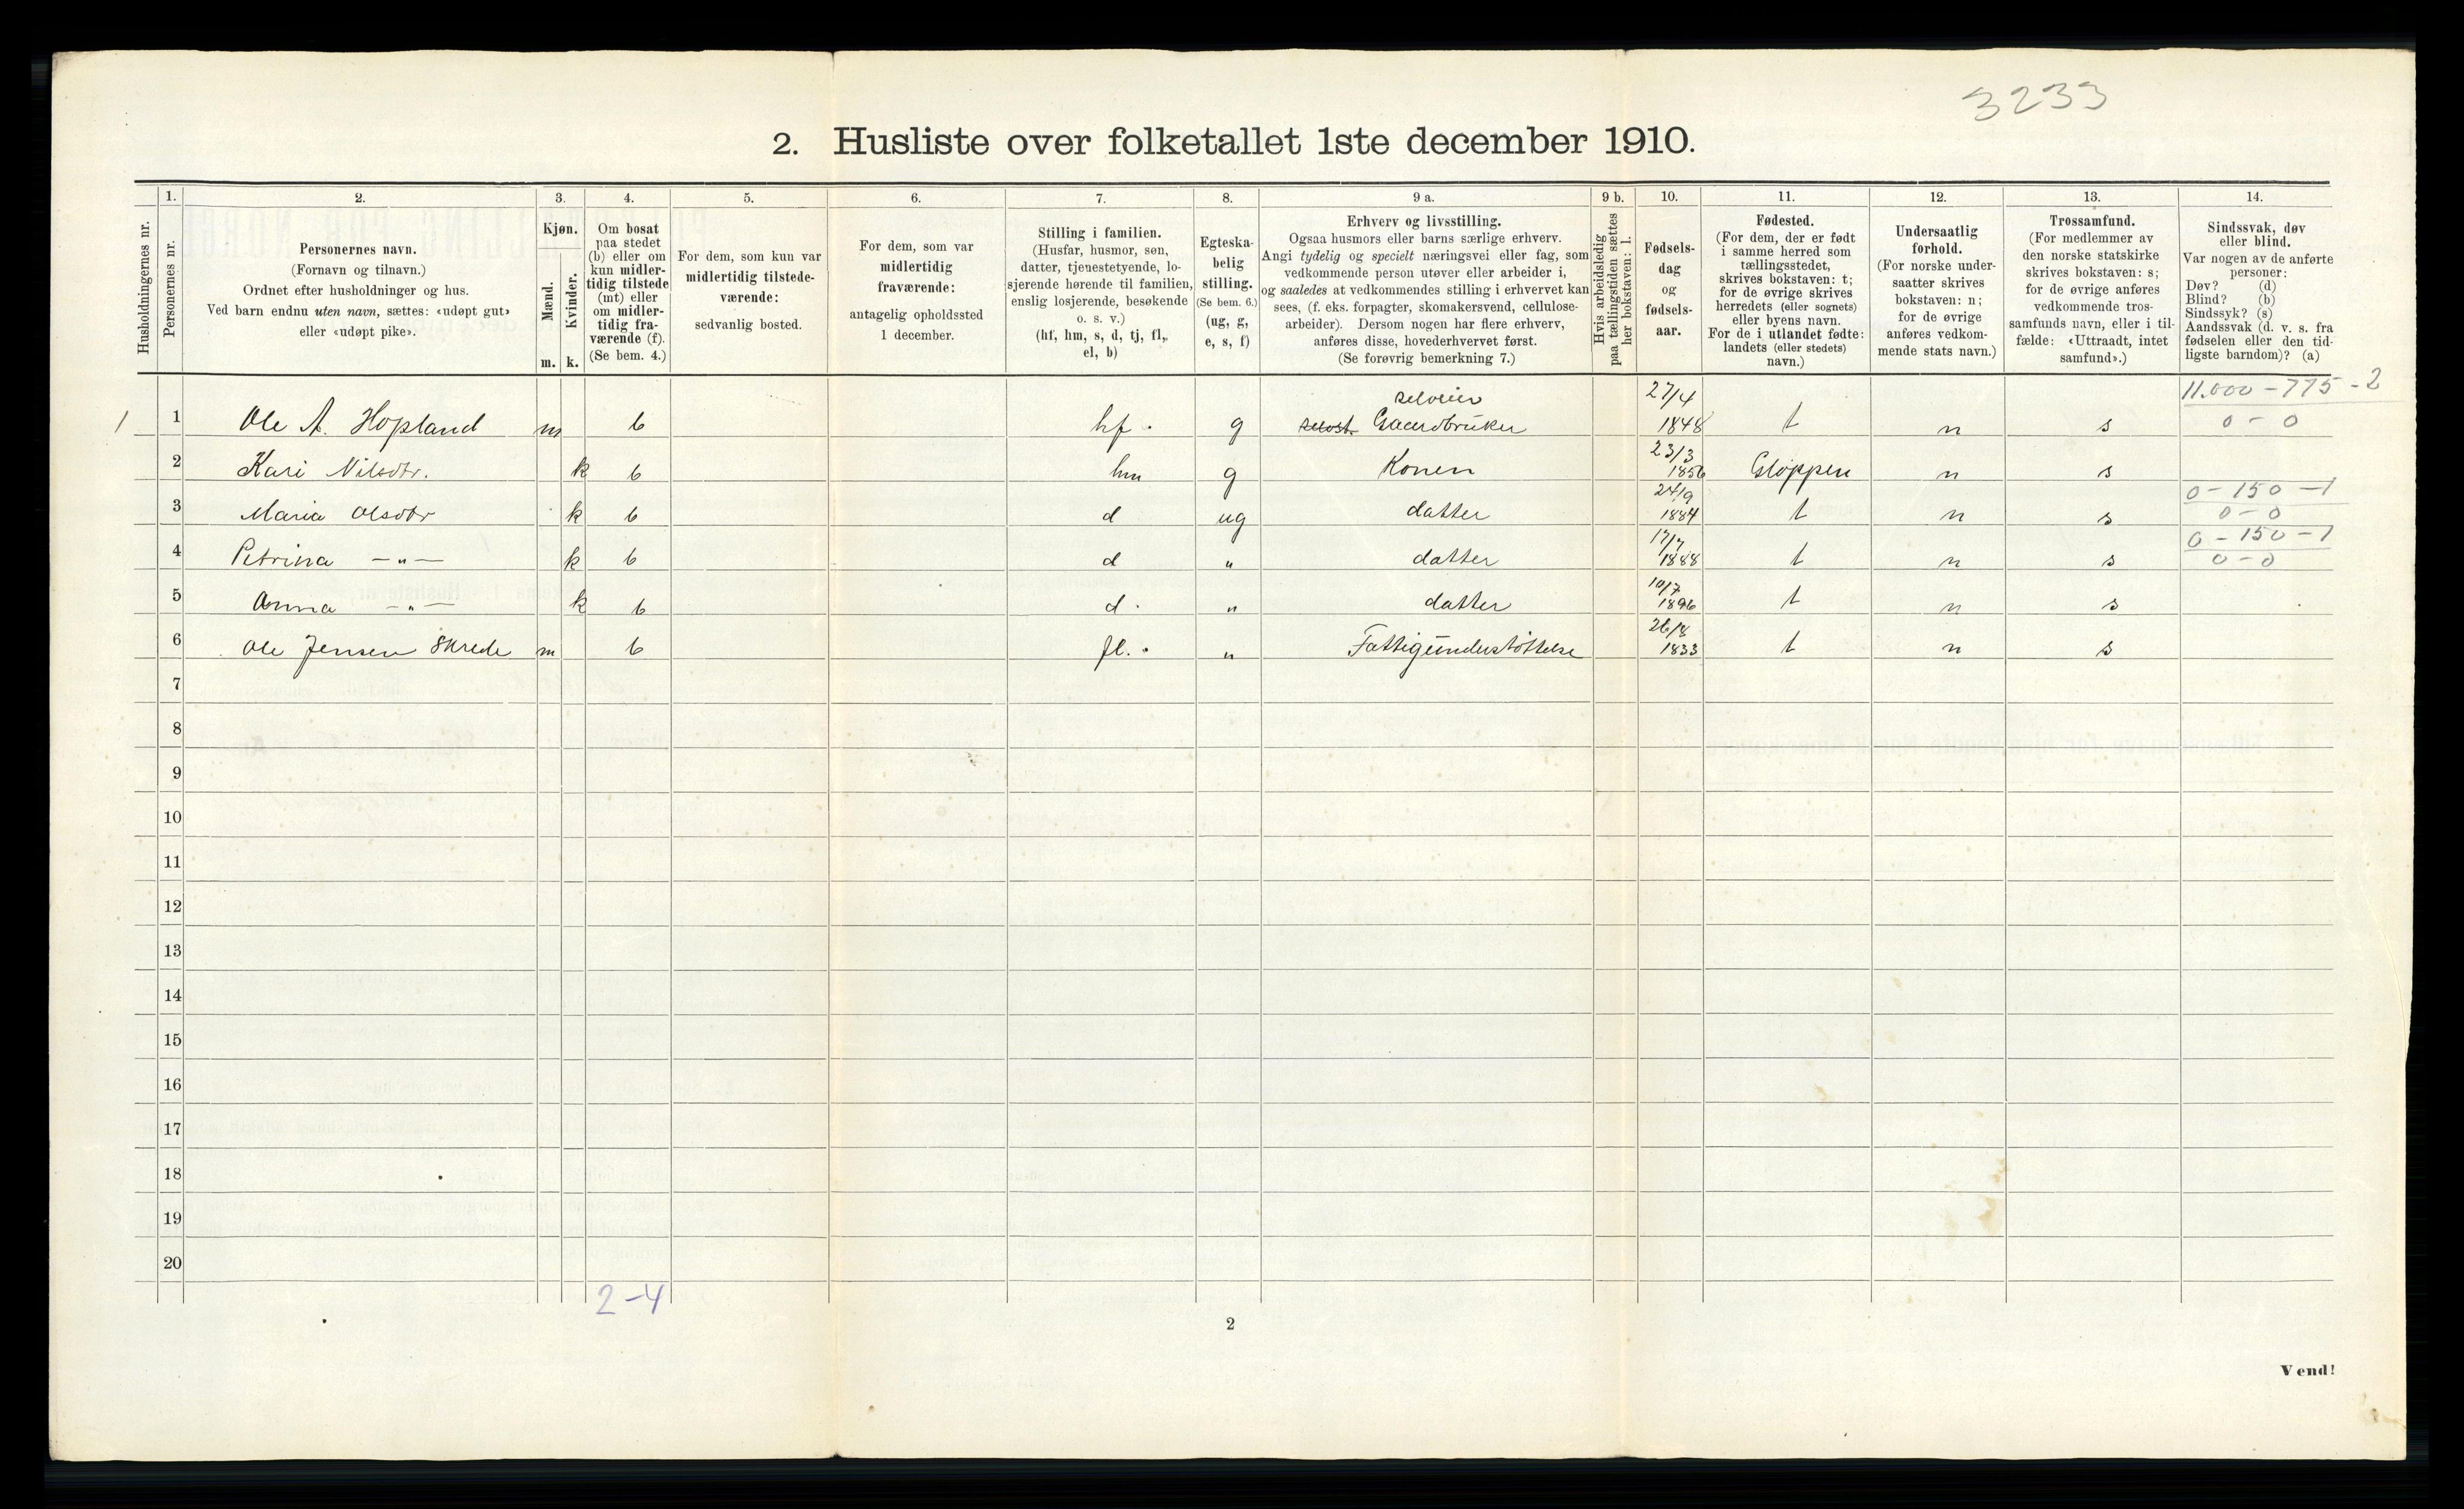 3233
2. Husliste over folketallet 1ste december 1910.
Husholdningernes nr.
1.
Personernes nr.
2.
Personernes navn.
(Fornavn og tilnavn.)
Ordnet efter husholdninger og hus.
Ved barn endnu uten navn, sættes: «udøpt gut»
eller «udøpt pike».
3.
Kjøn.
Mænd.
m.
Kvinder.
k.
4.
Om bosat
paa stedet
(b) eller om
kun midler-
tidig tilstede
(mt) eller
om midler-
tidig fra-
værende (f).
(Se bem. 4.)
5.
For dem, som kun var
midlertidig tilstede-
værende:
sedvanlig bosted.
6.
For dem, som var
midlertidig
fraværende:
antagelig opholdssted
1 december.
7.
Stilling i familien.
(Husfar, husmor, søn,
datter, tjenestetyende, lo-
sjerende hørende til familien,
enslig losjerende, besøkende
o. s. v.)
(hf, hm, s, d, tj, fl,
el, b)
8.
Egteska-
belig
stilling.
(Se bem. 6.)
(ug, g,
e, s, f)
9 a.
Erhverv og livsstilling.
Ogsaa husmors eller barns særlige erhverv.
Angi tydelig og specielt næringsvei eller fag, som
vedkommende person utøver eller arbeider i,
og saaledes at vedkommendes stilling i erhvervet kan
sees, (f. eks. forpagter, skomakersvend, cellulose-
arbeider). Dersom nogen har flere erhverv,
anføres disse, hovederhvervet først.
(Se forøvrig bemerkning 7.)
9 b.
Hvis arbeidsledig
paa tællingstiden sættes
her bokstaven: l.
10.
Fødsels-
dag
og
fødsels-
aar.
11.
Fødested.
(For dem, der er født
i samme herred som
tællingsstedet,
skrives bokstaven: t;
for de øvrige skrives
herredets (eller sognets)
eller byens navn.
For de i utlandet fødte:
landets (eller stedets)
navn.)
12.
Undersaatlig
forhold.
(For norske under-
saatter skrives
bokstaven: n;
for de øvrige
anføres vedkom-
mende stats navn.)
13.
Trossamfund.
(For medlemmer av
den norske statskirke
skrives bokstaven: s;
for de øvrige anføres
vedkommende tros-
samfunds navn, eller i til-
fælde: «Uttraadt, intet
samfund».)
14.
Sindssvak, døv
eller blind.
Var nogen av de anførte
personer:
Døv? (d)
Blind? (b)
Sindssyk? (s)
Aandssvak (d. v. s. fra
fødselen eller den tid-
ligste barndom)? (a)
selveier 27/4 11.000 - 775 - 2
1 1 Ole A. Hopland m b hf. g Gaardbruker 1848 t n s 0 - 0
23/3
2 Kari Nilsdtr. k b hm g Konen 1856 Gloppen n s
24/9 0 - 150 - 1
3 Maria Olsdtr k b d ug datter 1884 t n s 0 - 0
17/7 0 - 150 - 1
4 Petrina —„— k b d „ datter 1888 t n s 0 - 0
10/7
5 Anna —„— k b d. „ datter 1896 t n s
26/8
6 Ole Jensen Skrede m b fl. „ Fattigunderstøttelse 1833 t n s
7
8
9
10
11
12
13
14
15
16
17
18
19
20
2-4
2
Vend!